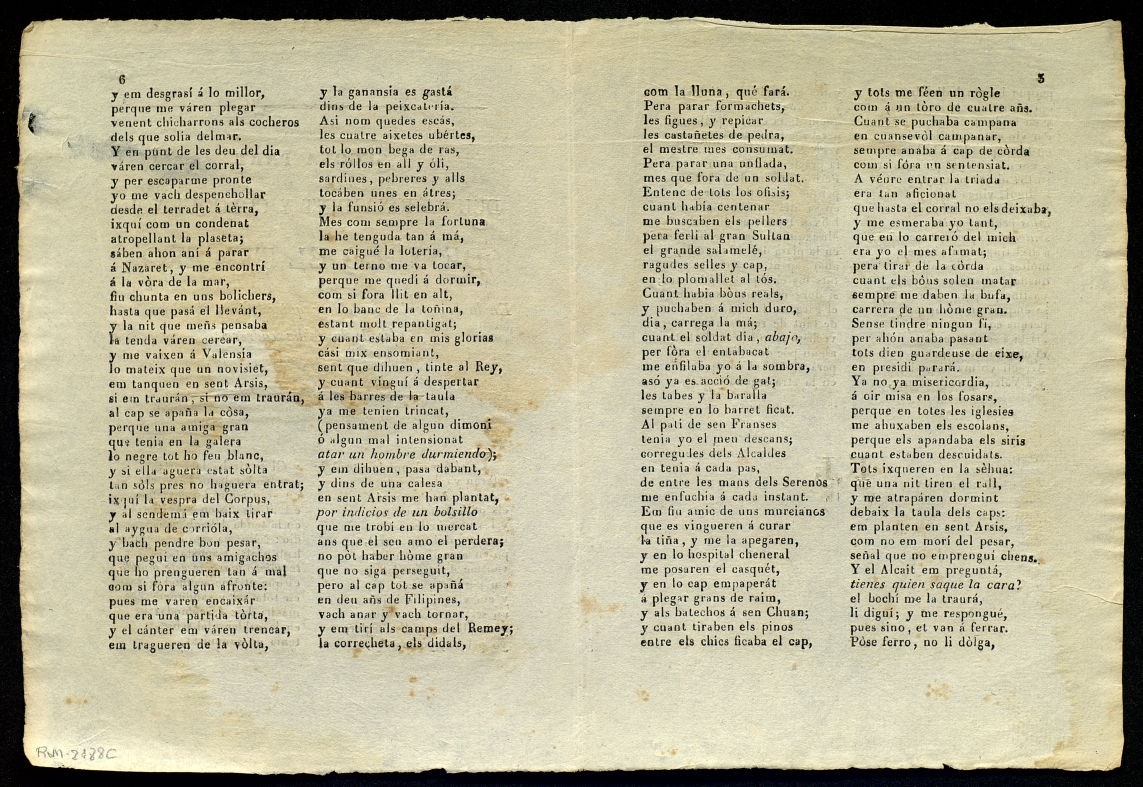 6
y em desgrasí á lo millor,
perque me váren plegar
venent chicharrons als cocheros
dels que solía delmar.
Y en punt de les deu del día
váren cercar el corral,
y per escaparme pronte
yo me vach despenchollar
desde el terradet á tèrra,
ixquí com un condenat
atropellant la plaseta;
sáben ahon aní á parar
á Nazaret, y me encontrí
á la vòra de la mar,
fiu chunta en uns bolichers,
hasta que pasá el llevánt,
y la nit que meñs pensaba
la tenda váren cercar,
y me vaixen á Valensia
lo mateix que un novisiet,
em tanquen en sent Arsis,
si em traurán, si no em traurán,
al cap se apaña la còsa,
perque una amiga gran
que tenia en la galera
lo negre tot ho feu blanc,
y si ella aguera estat sòlta
tan sòls pres no haguera entrat;
ixquí la vespra del Corpus,
y al sendemá em baix tirar
al aygua de corriòla,
y bach pendre bon pesar,
que peguí en uns amigachos
que ho prengueren tan á mal
com si fóra algun afronte:
pues me varen encaixár
que era una partida tòrta,
y el cánter em váren trencar,
em tragueren de la vòlta,
y la ganansia es gastá
dins de la peixcatería.
Asi nom quedes escás,
les cuatre aixetes ubértes,
tot lo mon bega de ras,
els róllos en all y óli,
sardines, pebreres y alls
tocában unes en átres;
y la funsió es selebrá.
Mes com sempre la fortuna
la he tenguda tan á má,
me caigué la lotería,
y un terno me va tocar,
perque me quedí á dormir,
com si fora llit en alt,
en lo banc de la toñina,
estant molt repantigat;
y cuant estaba en mis glorias
cási mix ensomiant,
sent que dihuen, tinte al Rey,
y cuant vinguí á despertar
á les barres de la taula
ya me tenien trincat,
(pensament de algun dimoni
ó algun mal intensionat
atar un hombre durmiendo);
y em dihuen, pasa dabant,
y dins de una calesa
en sent Arsis me han plantat,
por indicios de un bolsillo
que me trobí en lo mercat
ans que el seu amo el perdera;
no pòt haber hòme gran
que no siga perseguit,
pero al cap tot se apañá
en deu añs de Filipines,
vach anar y vach tornar,
y em tirí als camps del Remey;
la correcheta, els didals,
com la lluna, qué fará.
Pera parar formachets,
les figues, y repicar
les castañetes de pedra,
el mestre mes consumat.
Pera parar una unflada,
mes que fora de un soldat.
Entenc de tots los ofisis;
cuant había centenar
me buscaben els pellers
pera ferli al gran Sultan
el grande salamelé,
ragudes selles y cap,
en lo plomallet al tós.
Cuant había bòus reals,
y puchaben á mich duro,
día, carrega la má;
cuant el soldat día, abajo,
per fòra el entabacat
me enfilaba yo á la sombra,
asó ya es acció de gat;
les tabes y la baralla
sempre en lo barret ficat.
Al pati de sen Franses
tenia yo el meu descans;
corregudes dels Alcaldes
en tenia á cada pas,
de entre les mans dels Serenos
me enfuchia á cada instant.
Em fiu amic de uns murcianos
que es vingueren á curar
la tiña, y me la apegaren,
y en lo hospital cheneral
me posaren el casquét,
y en lo cap empaperát
á plegar grans de raim,
y als batechos á sen Chuan;
y cuant tiraben els pinos
entre els chics ficaba el cap,
3
y tots me féen un rògle
com á un tòro de cuatre añs.
Cuant se puchaba campana
en cuansevòl campanar,
sempre anaba á cap de còrda
com si fóra un sentensiat.
A véure entrar la triada
era tan aficionat
que hasta el corral no els deixaba,
y me esmeraba yo tant,
que en lo carreró del mich
era yo el mes afamat;
pera tirar de la còrda
cuant els bóus solen matar
sempre me daben la bufa,
carrera de un hòme gran.
Sense tindre ningun fí,
per ahón anaba pasant
tots dien guardeuse de eixe,
en presidi parará.
Ya no ya misericordia,
á oir misa en los fosars,
perque en totes les iglesies
me ahuxaben els escolans,
perque els apandaba els siris
cuant estaben descuidats.
Tots ixqueren en la sèhua:
que una nit tiren el rall,
y me atrapáren dormint
debaix la taula dels caps:
em planten en sent Arsis,
com no em morí del pesar,
señal que no emprenguí chens.
Y el Alcait em preguntá,
tienes quien saque la cara?
el bochí me la traurá,
li diguí; y me respongué,
pues sino, et van á ferrar.
Pòse ferro, no li dòlga,
RM-2488C